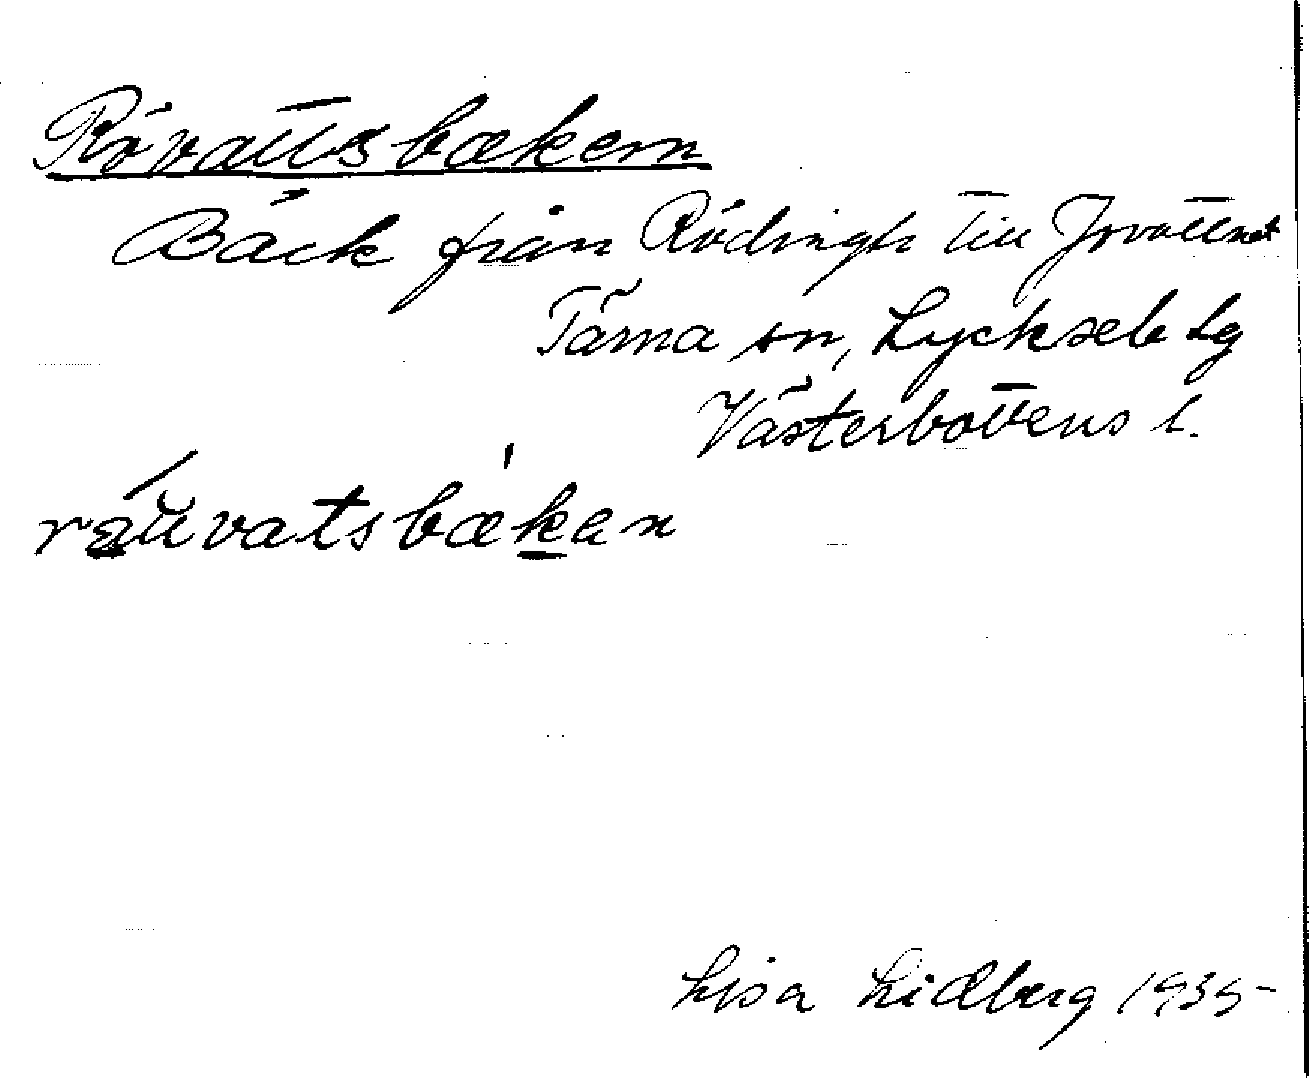 Rövattsbækem
Bäck från Rödingfr till Jovattnet
Tärna sn, Lycksele lg
Västerbottens l.
ráuvatsbækan
Lisa Lidberg 1935-